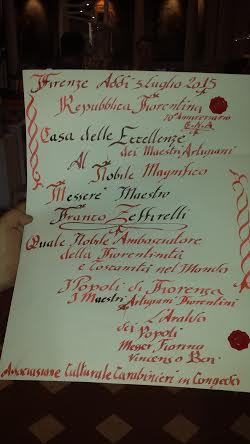 Firenze Addì 5 luglio 2015
Repubblica Fiorentina
10° Anniversario
C.E.M.A
Casa delle Eccellenze
dei Maestri Artigiani
Al Nobile Magnifico
Messere Maestro
Franco Zeffirelli
Quale Nobile Ambasciatore
della Fiorentinità
e toscanità nel Mondo
I Popoli di Fiorenza
I Maestri Artigiani Fiorentini
L'Araldo
dei Popoli
Messer Fionna
Vincenzo Ben.
Associazione Culturale Carabinieri in Congedo